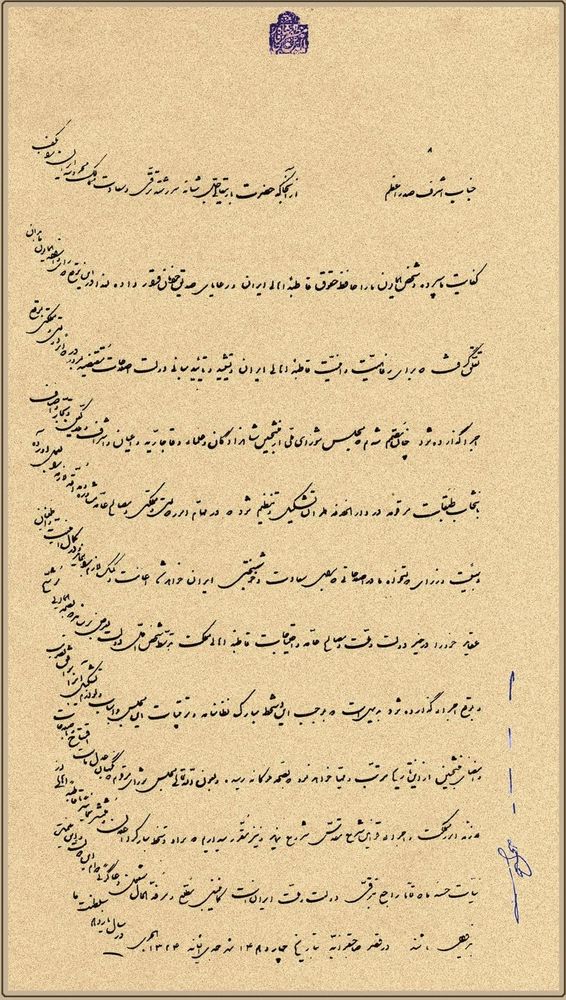 جناب اشرف صدراعظم از آنجا که حضرت باریتعالی جل شأنه سررشته ترقی و سعادت ممالک محروسه ایران را بکف
کفایت ما سپرده و شخص همایون ما را حافظ حقوق قاطبه اهالی ایران و رعایای صدیق خودمان قرار داده لهذا در این موقع که رای همایون ما بدان
تعلق گرفت که برای رفاهیت و امنیت قاطبه اهالی ایران و تشیید و تأیید مبانی دولت اصلاحات مقتضیه بمرور در دوایر دولتی و مملکتی بموقع
اجرا گذارده شود چنان مصمم شدیم که مجلس شورای ملی از منتخبین شاهزادگان و علماء و قاجاریه و اعیان و اشراف و ملاکین و تجار و اصناف
بانتخاب طبقات مرقومه در دارالخلافه طهران تشکیل و تنظیم شود که در مهام امور دولتی و مملکتی و مصالح عامه مشاوره و مداقه لازمه را بعمل آورده
و بهیئت وزرای دولتخواه ما در اصلاحاتی که برای سعادت و خوشبختی ایران خواهد شد اعانت و کمک لازم را بنماید و در کمال امنیت و اطمینان
عقاید خود را در خیر دولت و ملت و مصالح عامه و احتیاجات قاطبه اهالی مملکت بتوسط شخص اول دولت بعرض برساند که بصحه همایونی موشح
و بموقع اجرا گذارده شود بدیهی است که بموجب این دستخط مبارک نظامنامه و ترتیبات این مجلس و اسباب و لوازم تشکیل آنرا موافق تصویب
و امضای منتخبین از این تاریخ مرتب و مهیا خواهد نمود که بصحه ملوکانه رسیده و بعون الله تعالی مجلس شورای مرقوم که نگهبان عدل ماست افتتاح و باصلاحات
لازمه امور مملکت و اجراء قوانین شرع مقدس شروع نماید و نیز مقرر میداریم که سواد دستخط مبارک را اعلان و منتشر نمائید تا قاطبه اهالی از
نیات حسنه ما که تماما راجع بترقی دولت و ملت ایران است کماینبغی مطلع و مرفه الحال مشغول دعاگوئی دوام این دولت و این نعمت
بی زوال باشند در قصر صاحبقرانیه بتاریخ چهاردهم شهر جمادی الثانیه ۱۳۲۴ هجری در سال یازدهم سلطنت ما